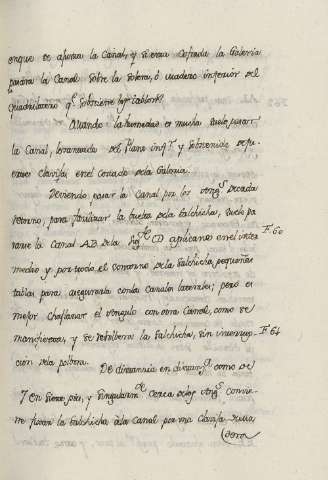 enque se afirma la Canal, y si está cofrada la Galería
pasara la Canal sobre la solera, ó madero inferior del
Quadrilatero q.e sostiene los tablon.s
Quando la humedad es mucha suele ponerse
la Canal, levantada del Plano inf.r y sobstenida de
clavija en el costado de la Galeria.
Deviendo pasar la Canal por los ang.s de cada
retorno, para finalizar la buelta de la Salchicha, suele pa
rarse la Canal A.B. de la CD aplicando en el inter F. 60
medio y por todo el contorno de la Salchicha pequeñas
tablas para asegurarla con las Canales laterales; pero es
mejor chaflanar el angulo con otra Canal, como se
manifiesta, y se retablera la Salchicha, sin interrup F. 61
cion de la polvora.
De distancia en distancia como de
7 en siete pies, y singularm.te cerca de los ang.s convie
ne fixar la Salchicha á la Canal por una clavija
dera